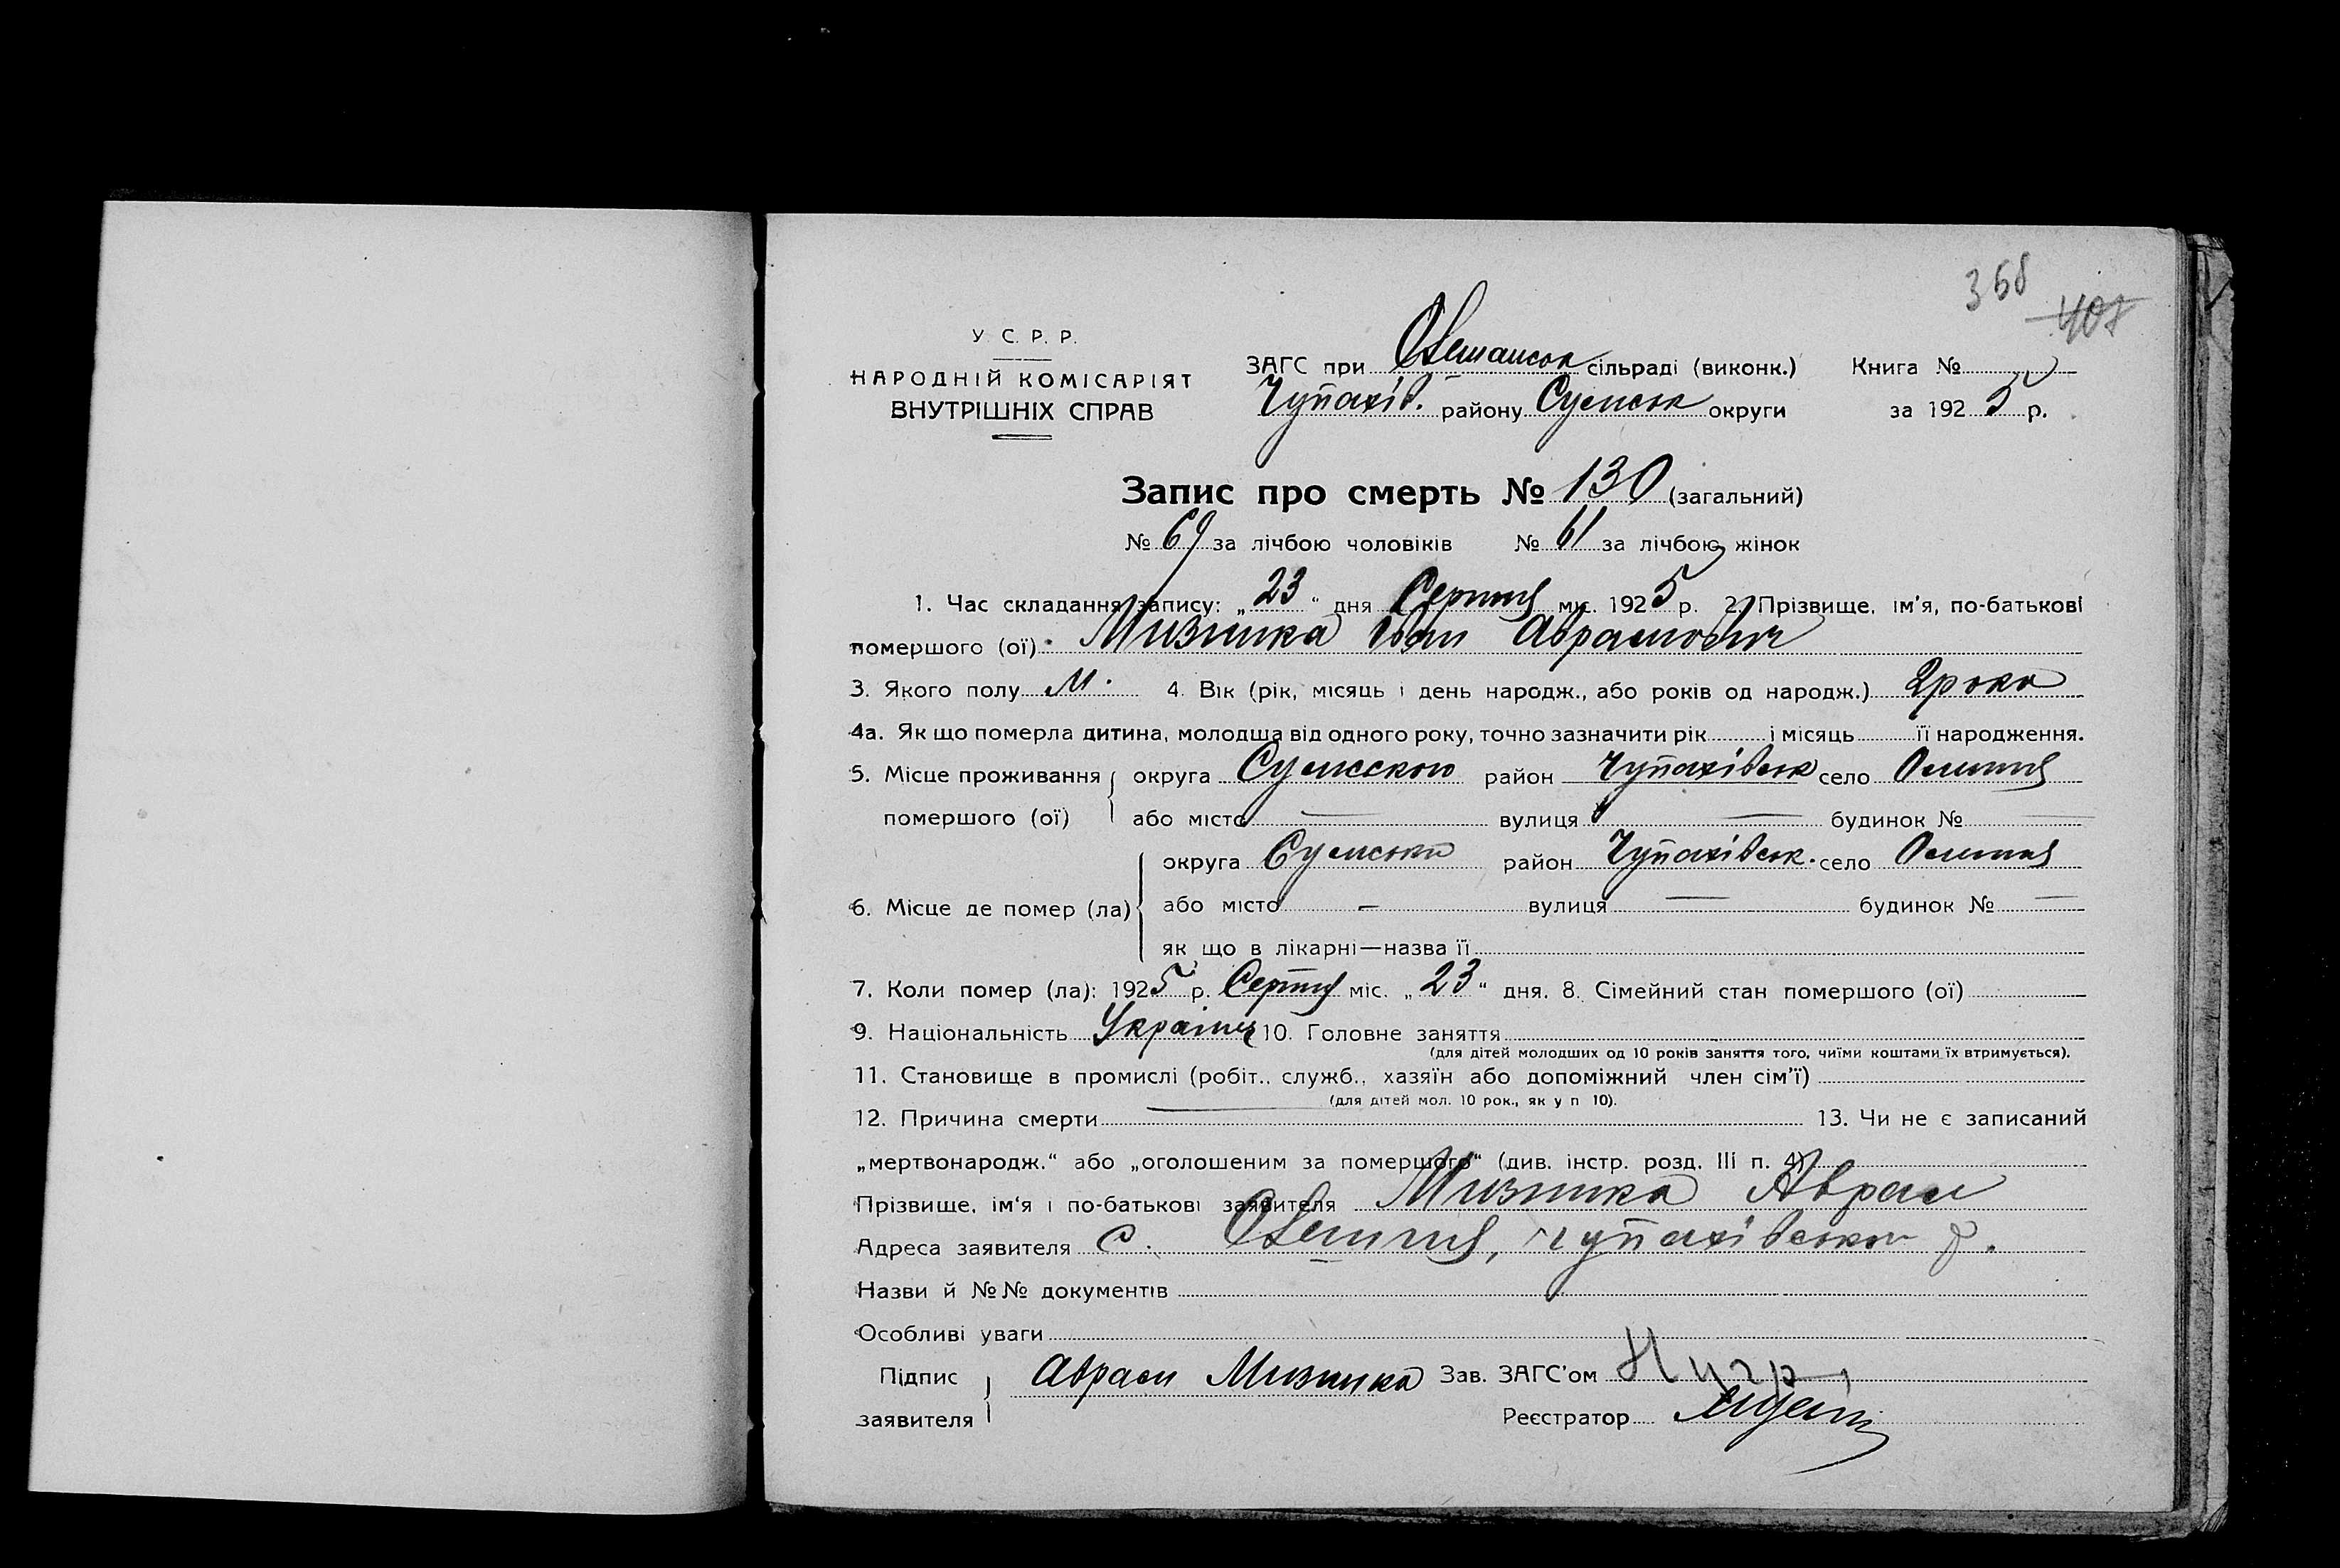 368
407
У С. Р. Р.
НАРОДНІЙ КОМІСАРІЯТ
ВНУТРІШНІХ СПРАВ
ЗАГС при сільраді (виконк.) Книга №
Чупахів. району Сумськ округи за 1925 р.
Запис про смерть № 130 (загальний)
№ 69 за лічбою чоловіків № 61 за лічбою жінок
1. Час складання запису: „23“ дня Серпня міс. 1925 р. 2. Прізвище, ім'я, по-батькові
помершого (ої) Мизника Іван Аврамович
3. Якого полу м. 4. Вік (рік, місяць і день народж., або років од народж.) 2 роки
4а. Як що померла дитина, молодша від одного року, точно зазначити рік і місяць її народження.
5. Місце проживання округа район Чупахівськ село
помершого (ої) або місто — вулиця — будинок № —
округа район Чупахівськ. село
6. Місце де помер (ла) або місто — вулиця — будинок № —
як що в лікарні—назва її
7. Коли помер (ла): 1925 р. Серпня міс. „23“ дня. 8. Сімейний стан помершого (ої)
9. Національність Українец 10. Головне заняття
(для дітей молодших од 10 років заняття того, чиїми коштами їх втримується).
11. Становище в промислі (робіт., служб., хазяїн або допоміжний член сім'ї)
(для дітей мол. 10 рок., як у п 10).
12. Причина смерти — 13. Чи не є записаний
„мертвонародж.“ або „оголошеним за помершого“ (див. інстр. розд. III п. 4)
Прізвище, ім'я і по-батькові заявителя Мизника Аврам
Адреса заявителя с. Чупахівського р.
Назви й №№ документів
Особливі уваги
Підпис Аврам Мизника Зав. ЗАГС'ом
заявителя Реєстратор